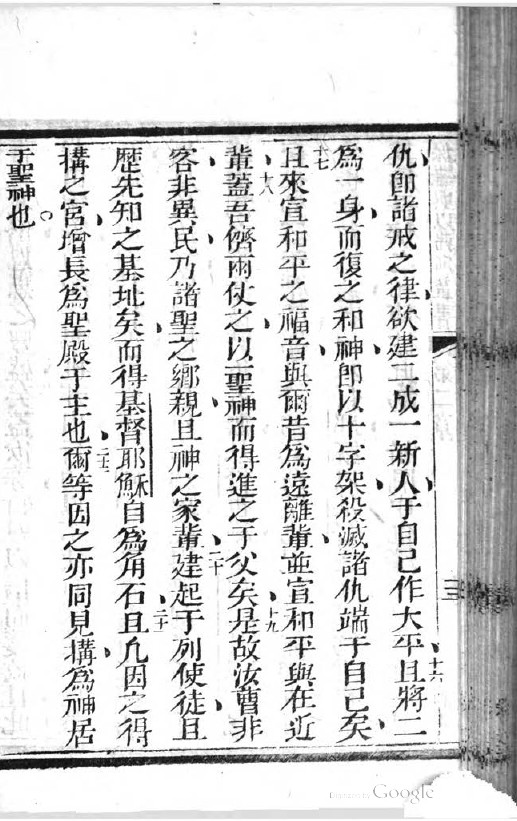 仇卽諸戒之律欲建二成一新人于自己作大平且將二
十六
爲一身而復之和神卽以十字架殺滅諸仇端于自己矣
十七
且來宣和平之福音與爾昔爲遠離軰並宣和平與在近
十八
軰蓋吾儕兩仗之以一聖神而得進之于父矣是故汝曹非
十九
客非異民乃諸聖之鄉親且神之家軰建起于列使徒且
二十
歷先知之基址矣而得基督耶穌自爲角石且凢因之得
二十一
搆之宮增長爲聖殿于主也爾等因之亦同見搆爲神居
二十二
于聖神也
Google